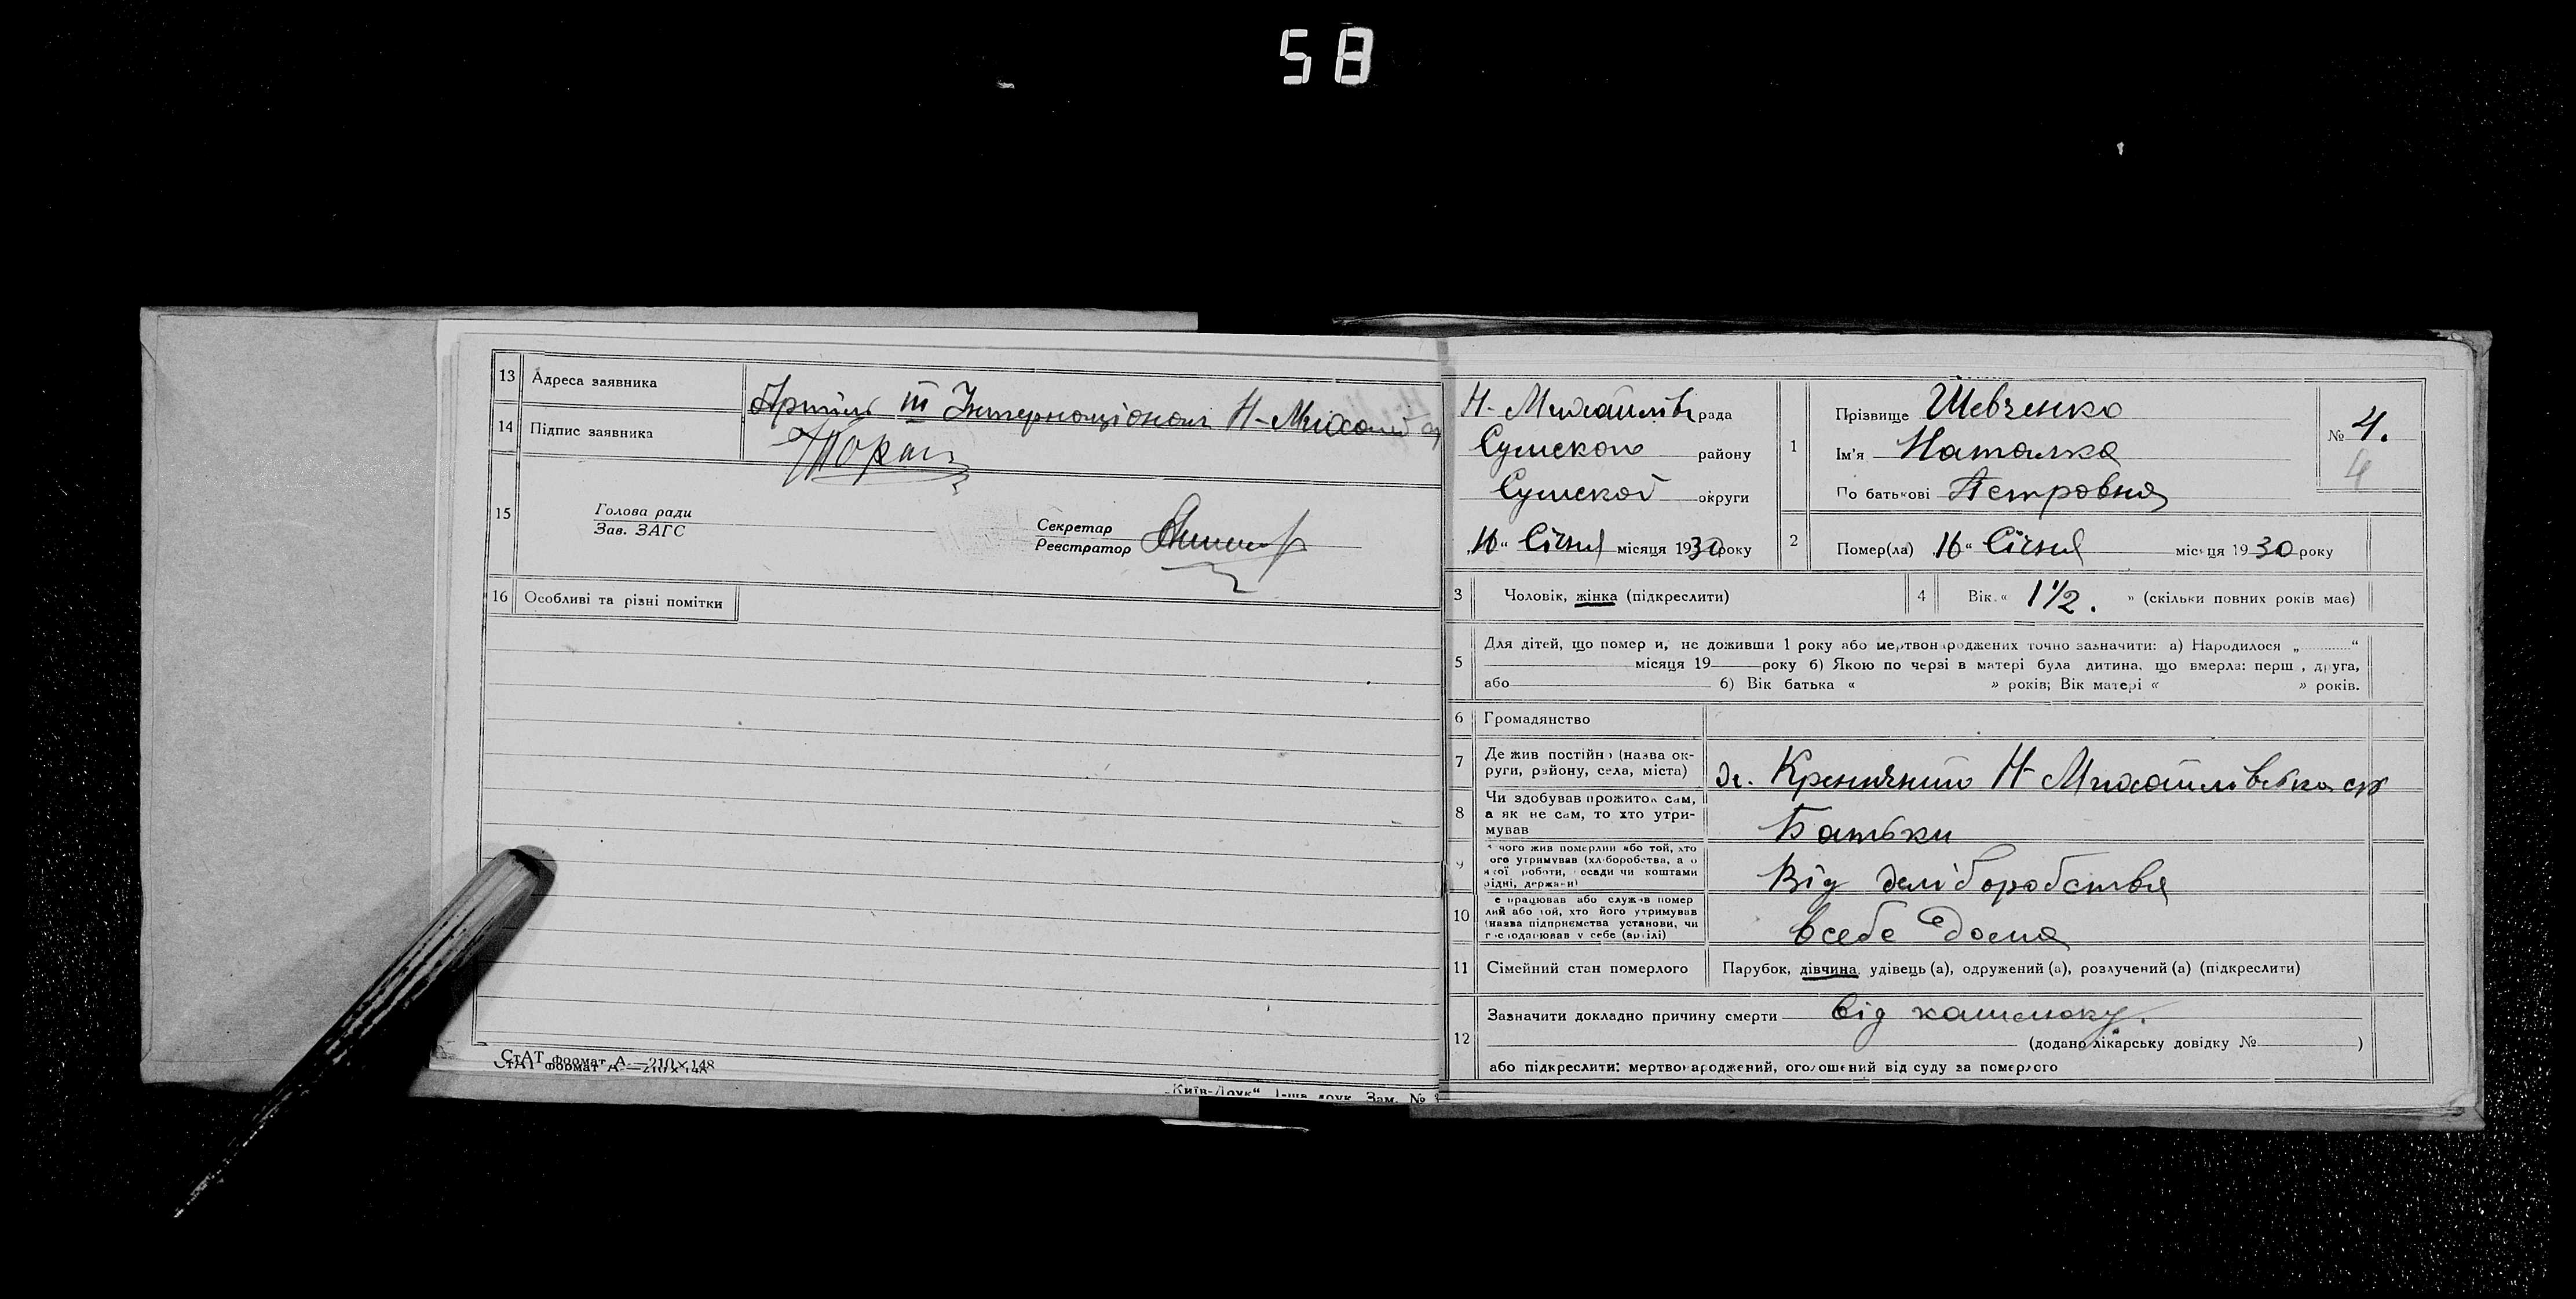 58
13 Адреса заявника Артіль III Інтернаціонал Н-Михайл
14 Підпис заявника
15 Голова ради
Зав. ЗАГС
Секретар
Реєстратор
16 Особливі та різні помітки
СтАТ формат А—210×148
СтАТ формат А—210×148
„Київ-Друк“ 1-ша друк. Зам. №
Н-Михайлівс рада
Сумского району
Сумской округи
„16“ Січня місяця 1930 року
1 Прізвище Шевченко
Ім'я Наталка
По батькові Петровна
№ 4.
4
2 Помер(ла) „16“ Січня місяця 1930 року
3 Чоловік, жінка (підкреслити)
4 Вік „ 1 1/2. » (скільки повних років має)
5 Для дітей, що померли, не доживши 1 року або мертвонароджених точно зазначити: а) Народилося „ “
місяця 19 року б) Якою по черзі в матері була дитина, що вмерла: перша, друга,
або б) Вік батька « » років; Вік матері « » років.
6 Громадянство
7 Де жив постійно (назва ок-
руги, району, села, міста)
Н-Михайлівська с/р
8 Чи здобував прожиток сам,
а як не сам, то хто утри-
мував
Батьки
9 З чого жив померлий або той, хто
його утримував (хліборобства, а о
якої роботи, посади чи коштами
рідні, держави)
Від хліборобства
10 Де працював або служив помер
лий або той, хто його утримував
(назва підприємства установи, чи
господарював у себе (артілі)
в себе дома
11 Сімейний стан померлого Парубок, дівчина, удівець (а), одружений (а), розлучений (а) (підкреслити)
12 Зазначити докладно причину смерти від кашлюку.
(додано лікарську довідку № )
або підкреслити: мертвонароджений, оголошений від суду за померлого